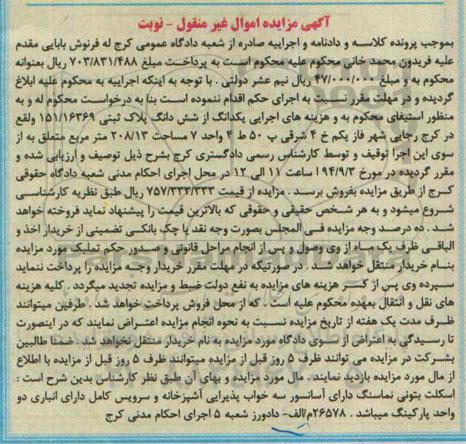 آگهی مزایده اموال غیر منقول - نوبت
بموجب پرونده کلاسه و دادنامه و اجراییه صادره از شعبه دادگاه عمومی کرج له فرنوش بابایی مقدم
علیه فریدون محمد خانی محکوم علیه محکوم است به پرداخت مبلغ ۷۰۳/۸۳۱/۴۸۸ ریال بعنوانه
محکوم به و مبلغ ۴۷/۰۰۰/۰۰۰ ریال نیم عشر دولتی . با توجه به اینکه اجراییه به محکوم علیه ابلاغ
گردیده و در مهلت مقرر نسبت به اجرای حکم اقدام ننموده است بنا به درخواست محکوم له و به
منظور استیفای محکوم به و هزینه های اجرایی یکدانگ از شش دانگ پلاک ثبتی ۱۵۱/۱۶۳۶۹ ولقع
در کرج رجایی شهر فاز یکم خ ۴ شرقی پ ۵۰ ط ۴ واحد ۷ مساحت ۲۰۸/۱۳ متر مربع متعلق به از
سوی این اجرا توقیف و توسط کارشناس رسمی دادگستری کرج بشرح ذیل توصیف و ارزیابی شده و
مقرر گردیده در مورخ ۹۴/۹/۳ ساعت ۱۱ الی ۱۲ در محل اجرای احکام مدنی شعبه دادگاه حقوقی
کرج از طریق مزایده بفروش برسد . مزایده از قیمت ۷۵۷/۳۳۳/۳۳۳ ریال طبق نظریه کارشناسی
شروع میشود و به هر شخص حقیقی و حقوقی که بالاترین قیمت را پیشنهاد نماید فروخته خواهد
شد . ده درصد وجه مزایده فی المجلس بصورت وجه نقد یا چک بانکی تضمینی از خریدار اخذ و
الباقی ظرف یک ماه از وی وصول و پس از انجام مراحل قانونی و صدور حکم تملیک مورد مزایده
بنام خریدار منتقل خواهد شد . در صورتیکه در مهلت مقرر خریدار وجه مزایده را پرداخت ننماید
سپرده وی پس از کسر هزینه های مزایده به نفع دولت ضبط و مزایده تجدید میگردد . کلیه هزینه
های نقل و انتقال بعهده محکوم علیه است . که از محل فروش پرداخت خواهد شد . طرفین میتوانند
ظرف مدت یک هفته از تاریخ مزایده نسبت به نحوه انجام مزایده اعتراض نمایند که در اینصورت
تا رسیدگی به اعتراض از سوی دادگاه مورد مزایده به نام خریدار منتقل نخواهد شد. ضمنا طالبین
بشرکت در مزایده می توانند ظرف ۵ روز قبل از مزایده میتوانند ظرف ۵ روز قبل از مزایده با اطلاع
از مال مورد مزایده بازدید نمایند . مال مورد مزایده و بهای آن طبق نظر کارشناس بدین شرح است :
اسکلت بتونی نماسنگ دارای آسانسور سه خواب پذیرایی آشپزخانه و سرویس کامل دارای انباری دو
واحد پارکینگ میباشد . ۲۶۵۷۸م/الف- دادورز شعبه ۵ اجرای احکام مدنی کرج